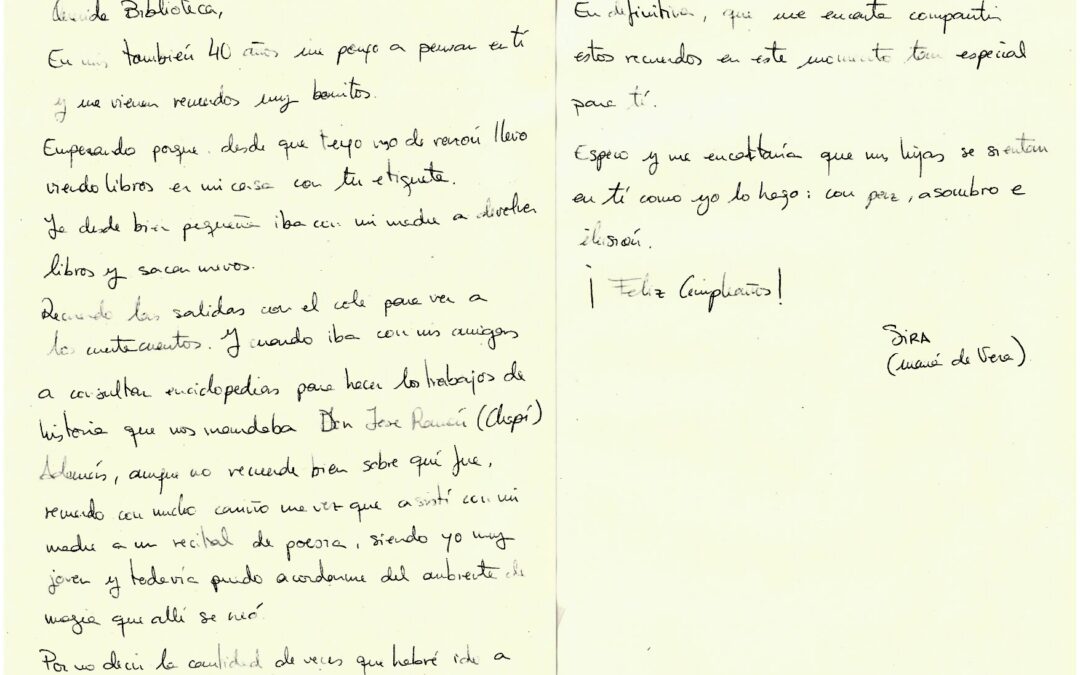 Querida Biblioteca,
En mis también 40 años me pongo a pensar en tí
y me vienen recuerdos muy bonitos.
Empezando porque desde que tengo uso de razón llevo
viendo libros en mi casa con tu etiqueta.
Ya desde bien pequeña iba con mi madre a devolver
libros y sacar nuevos.
Recuerdo las salidas con el cole para ver a
los cuentacuentos. Y cuando iba con mis amigas
a consultar enciclopedias para hacer los trabajos de
historia que nos mandaba Don Jose Ramón (Chapí)
Además, aunque no recuerde bien sobre qué fue,
recuerdo con mucho cariño una vez que asistí con mi
madre a un recital de poesía, siendo yo muy
joven y todavía puedo acordarme del ambiente de
magia que allí se creó.
Por no decir la cantidad de veces que habré ido a
En definitiva, que me encanta compartir
estos recuerdos en este momento tan especial
para tí.
Espero y me encantaría que mis hijas se sientan
en tí como yo lo hago: con paz, asombro e
ilusión.
¡Feliz Cumpleaños!
SIRA
(mamá de Vera)